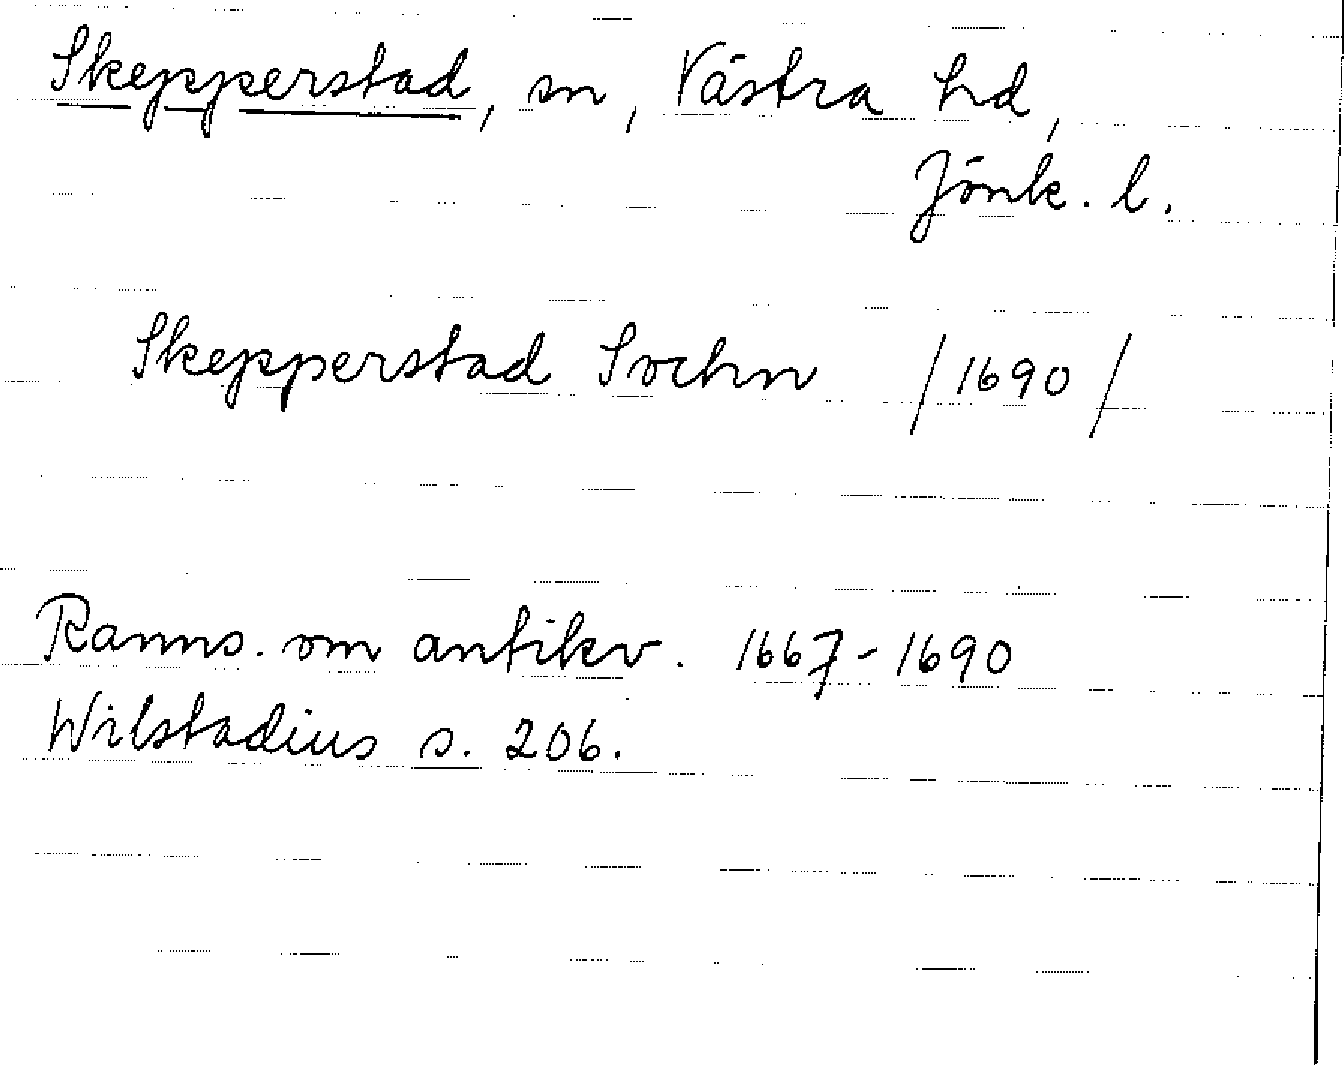 Skepperstad, sn, Västra hd,
Jönk. l.
Skepperstad Sochn /1690/
Ranns. om antikv. 1667-1690
Wilstadius s. 206.